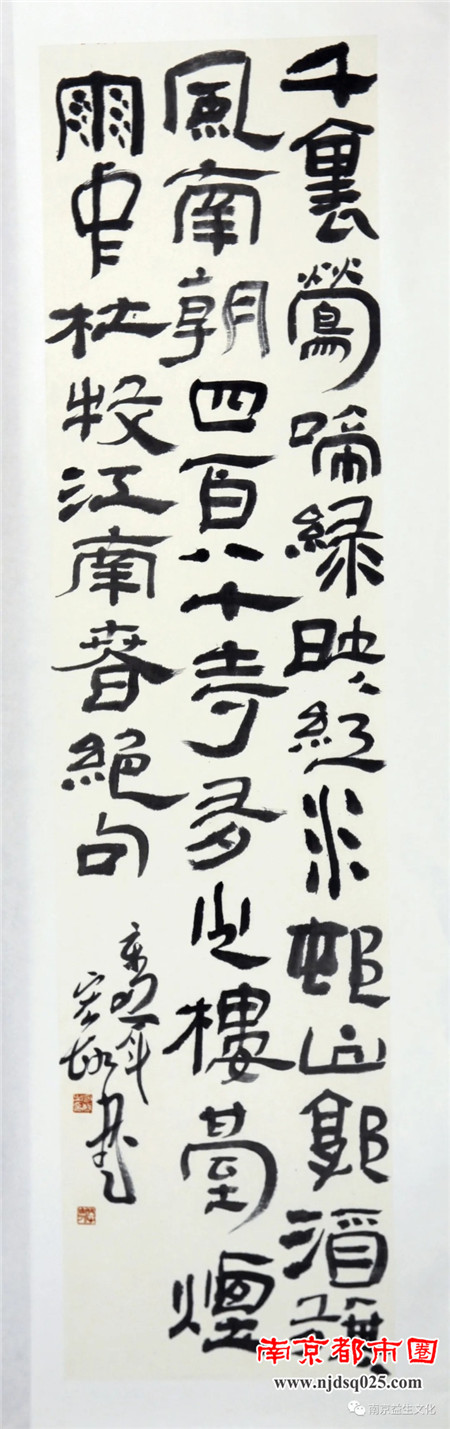 千里鶯啼綠映紅水邨山郭酒旗
風南朝四百八十寺多少樓臺煙
雨中杜牧江南春絕句
宏
書
南京都市圈
www.njdsq025.com
南京益生文化